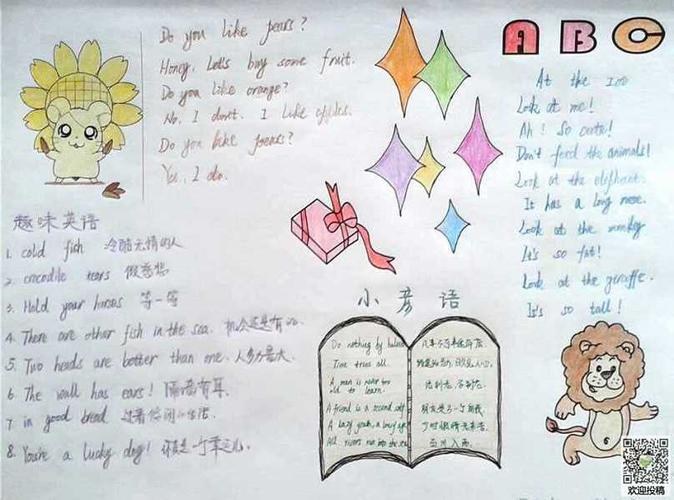 Do you like pears?
Honey, Let's buy some fruit.
Do you like orange?
No, I don't. I like apples.
Do you like pears?
Yes, I do.
ABC
At the zoo
Look at me!
Ah! So cute!
Don't feed the animals!
Look at the elephant.
It has a long nose.
Look at the monkey
It's so fat!
Look at the giraffe.
It's so tall!
趣味英语
1. cold fish 冷酷无情的人
2. crocodile tears 假慈悲
3. Hold your horses 等一等
4. There are other fish in the sea. 机会还是有的.
5. Two heads are better than one. 人多力量大.
6. The wall has ears! 隔墙有耳.
7 in good bread 过着悠闲的生活
8. You're a lucky dog! 你真是一个幸运儿.
小彦语
Do nothing by halves
Time tries all.
A man is never too
old to learn.
A friend is a second self
A lazy youth, a lousy age
All rivers run into the sea
凡事不可半途而废
活到老，学到老.
百川入海.
欢迎投稿